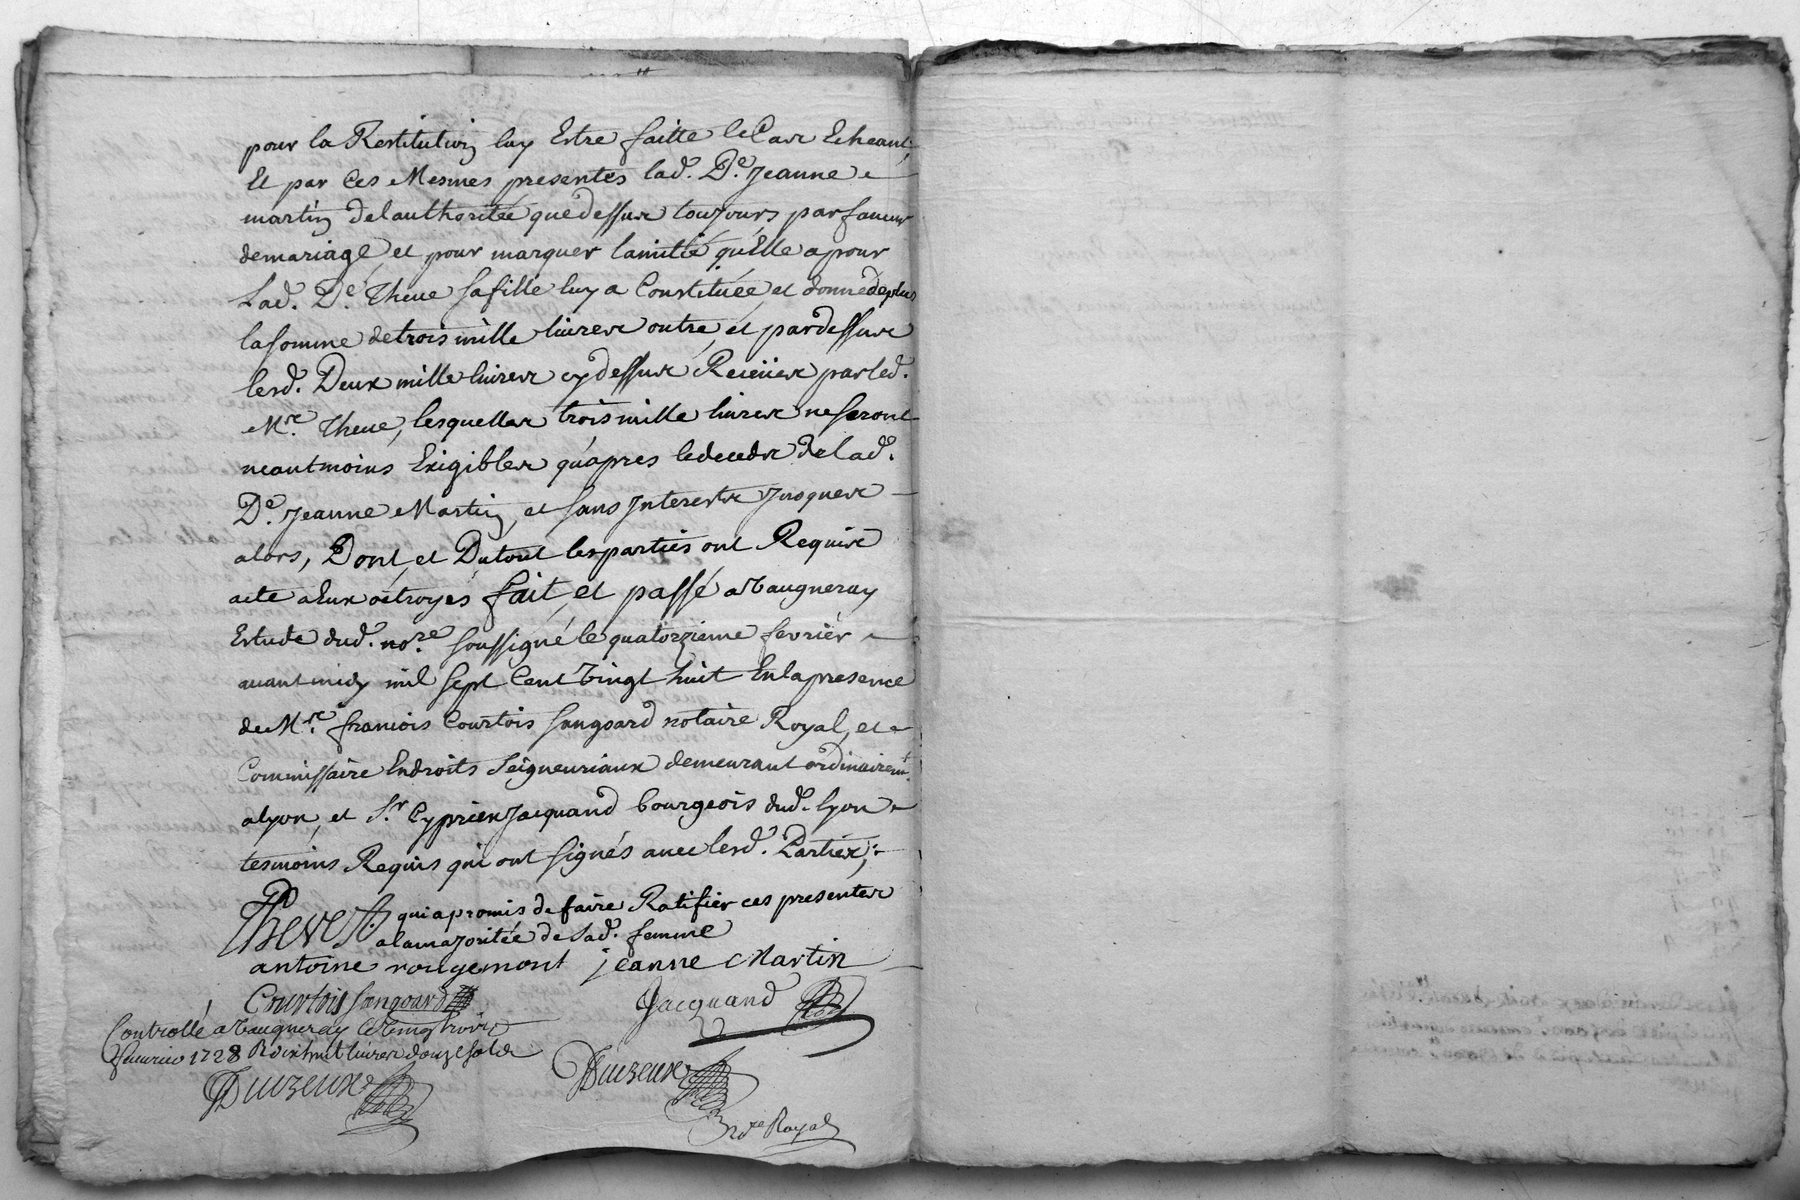 pour la Restitution luy Estre faitte le Cas Echeant,
Et par Ces Mesmes presentes lad. De. Jeanne
martin de lauthoritée que dessus toujours par faueur
de mariage, et pour marquer lamitié qu'Elle a pour
Lad. De. Theue sa fille luy a Constituée, et donné de plus
la somme de trois mille liures outre, et par dessus
lesd. Deux mille liures cy dessus Receües par led.
Mre. Theue, lesquelles trois mille liures ne seront
neantmoins Exigibles qu'apres le deceds de lad.
De. Jeanne Martin, et sans Interests Jusques
alors, Dont, et Du tout les parties ont Requis
acte a Eux octroyés fait, et passé a Vaugneray
Estude dud. nore. soussigné le quatorzieme fevriér
auant midy mil sept Cent Vingt huit En la presence
de Mre. francois Courtois Sangoard notaire Royal, et
Commissaire En droits Seigneuriaux demeurant ordinairemt.
a lyon, et Sr. Cyprien Jacquand bourgeois dud. lyon
tesmoins Requis qui ont signés auec lesd. Parties;
Thevet qui a promis de faire Ratifier ces presentes
a la majoritée de Lad. femme
antoine rougemont jeanne Martin
Courtois Sangoard Jacquand
Controllé a Vaugneray le Vingt trois
feurier 1728 R dixhuit liures douze sols
Duvzeux Duvzeux
nore Royal